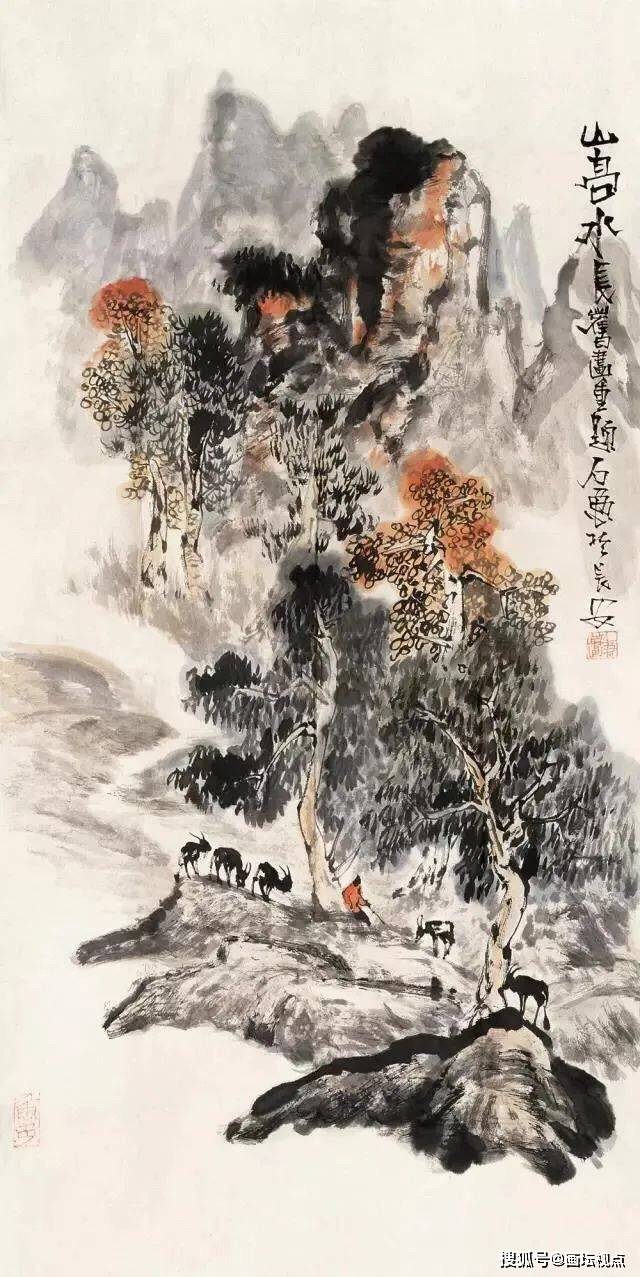 山高水長舊畫重題石魯於長安
搜狐号@画坛视点